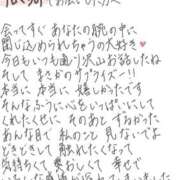 会ってすぐ あなたの腕の中に
閉じ込められちゃうの大好き♥
今日もいっも通り沢山お話したね
そして まさかのサプライズ!!
本当に 本当に 嬉しかったです
そんなふうに心をいっぱいにして
くれたくせに そのあと すわがった
あんな目で 私のこと 見ないでよ
どきどきして 触れたくなって
気持ちくて 愛おしくて 幸せで